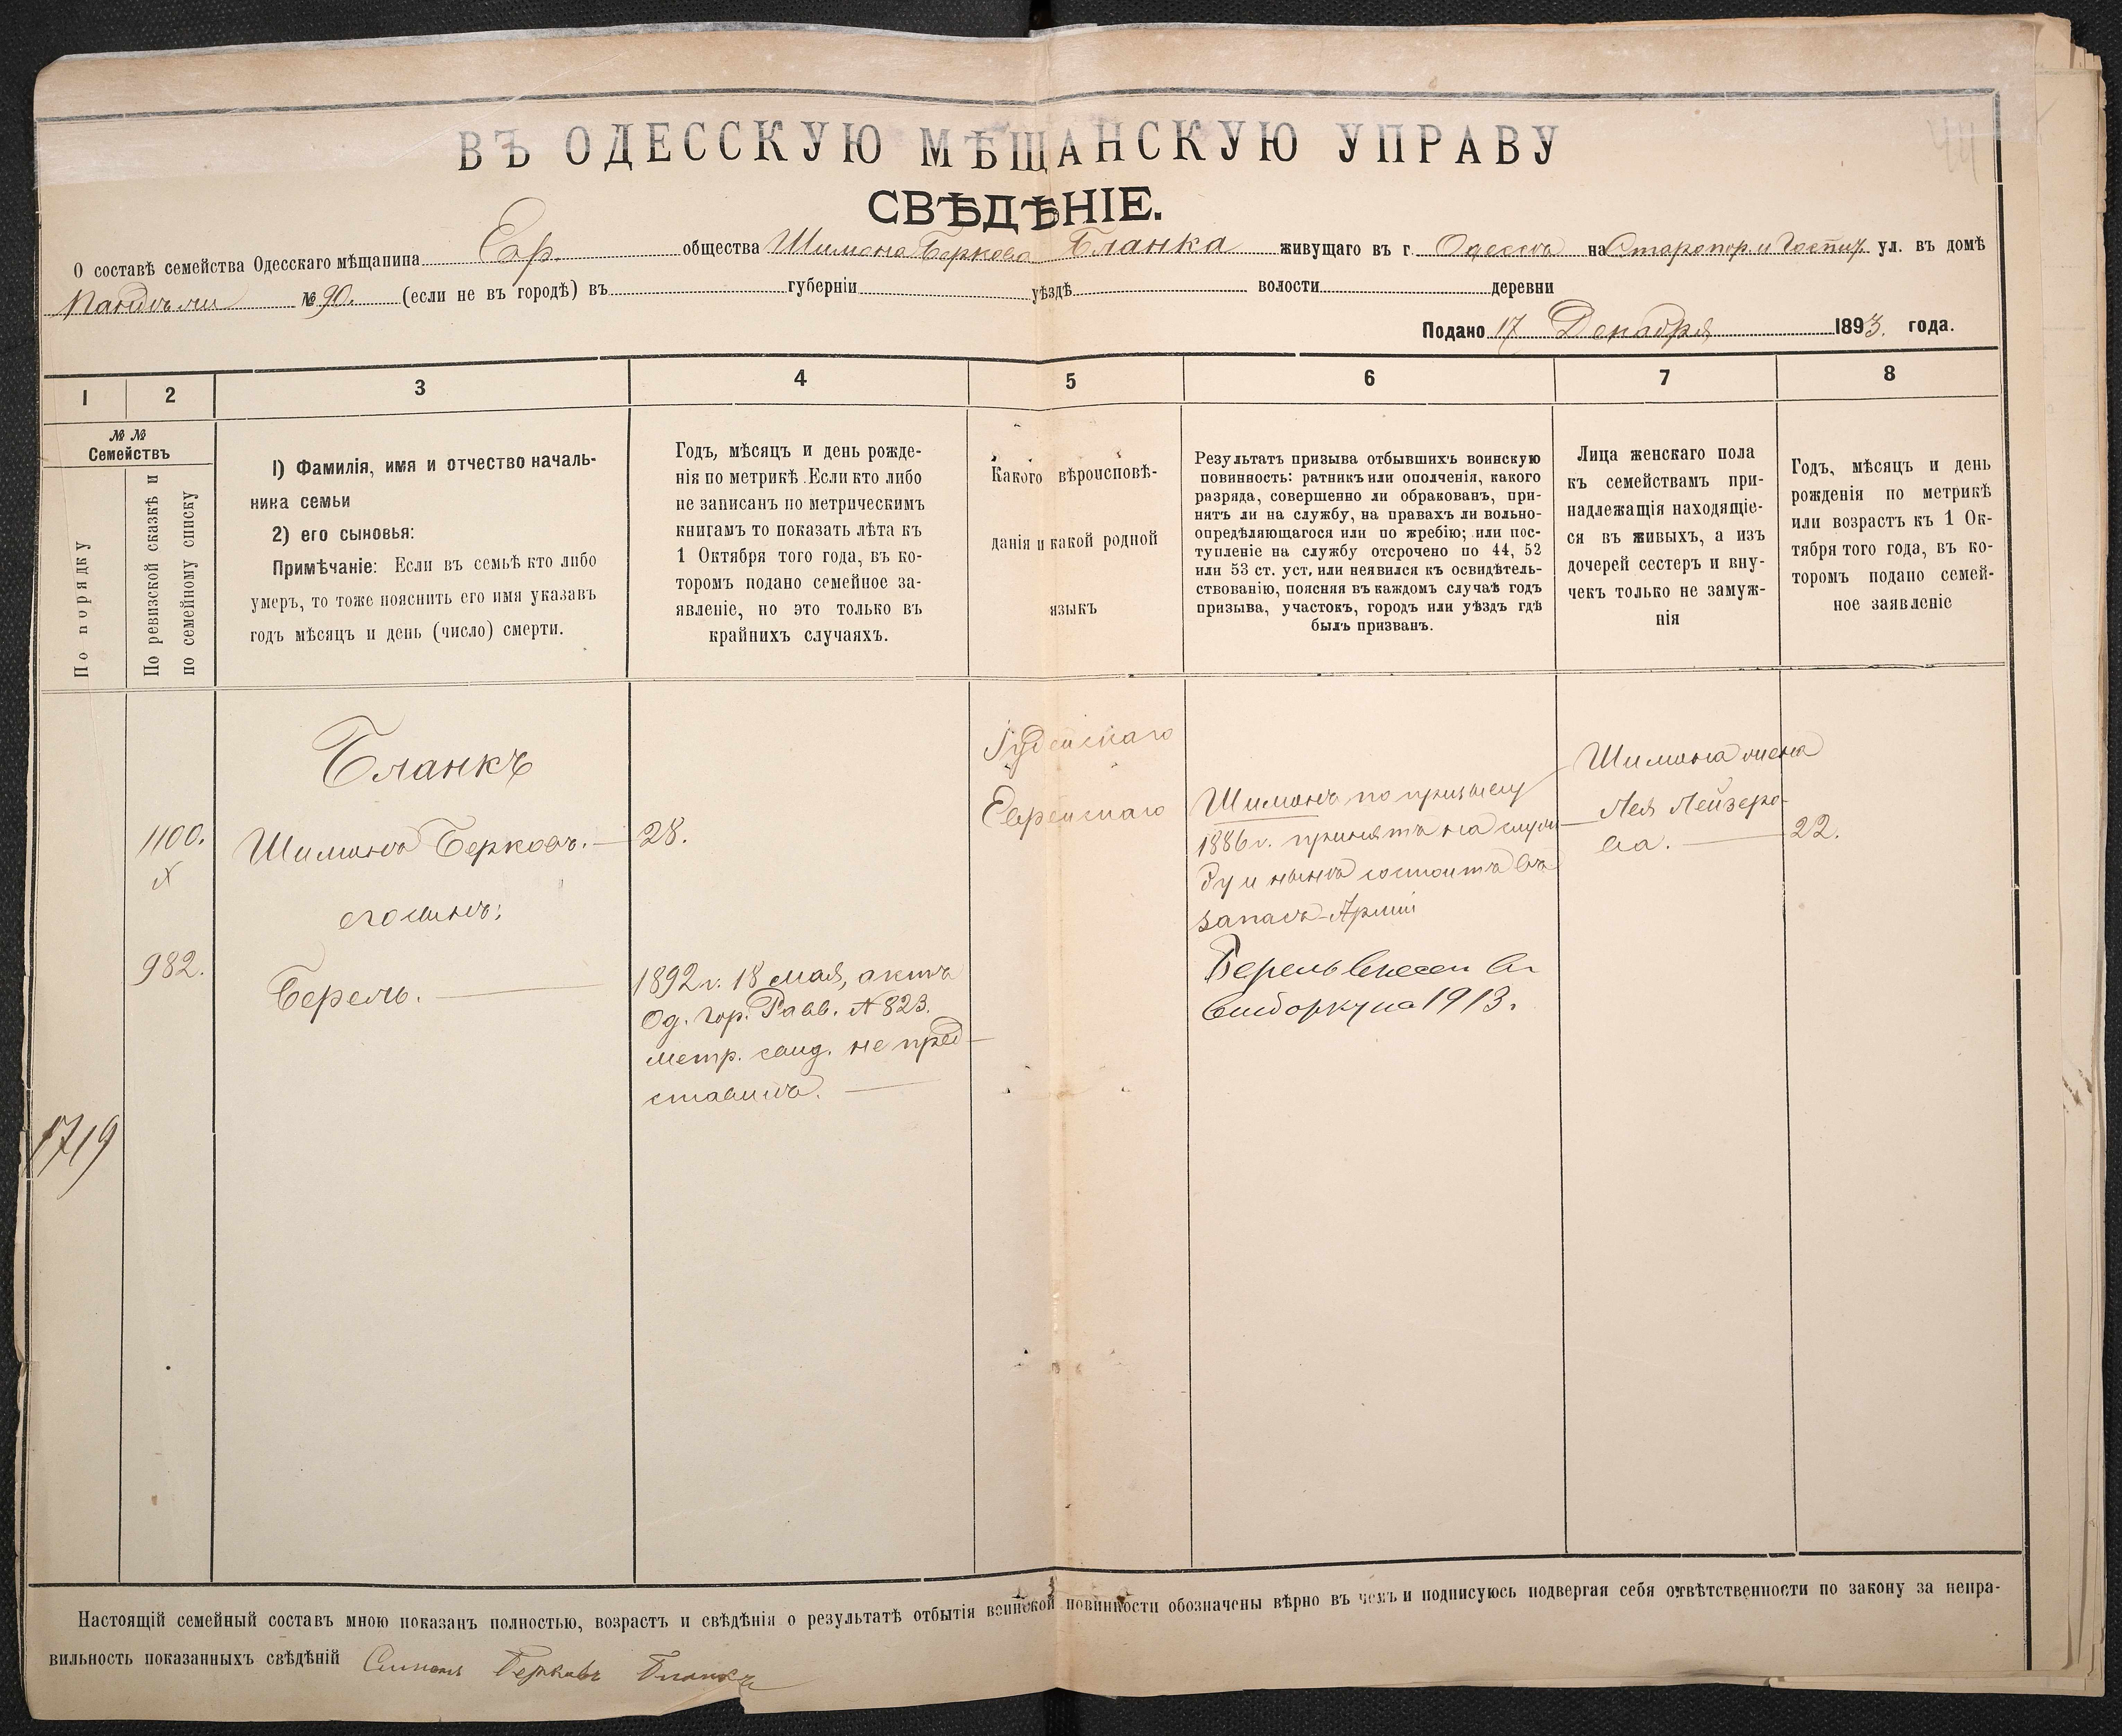 ВЪ ОДЕССКУЮ МѢЩАНСКУЮ УПРАВУ
СВѢДѢНІЕ.
О составѣ семейства Одесскаго мѣщанина Евр. общества Шимона Беркова Бланка живущаго въ г. Одессѣ на Старопор. и Госпит. ул. въ домѣ
№ 90. (если не въ городѣ) въ губерніи уѣздѣ волости деревни
Подано 17 Декабря 1893. года.
1 2 3 4 5 6 7 8
№ №
Семействъ
По порядку
По ревизской сказкѣ и
по семейному списку
1) Фамилія, имя и отчество началь-
ника семьи
2) его сыновья:
Примѣчаніе: Если въ семьѣ кто либо
умеръ, то тоже пояснить его имя указавъ
годъ мѣсяцъ и день (число) смерти.
Годъ, мѣсяцъ и день рожде-
нія по метрикѣ. Если кто либо
не записанъ по метрическимъ
книгамъ то показать лѣта къ
1 Октября того года, въ ко-
торомъ подано семейное за-
явленіе, но это только въ
крайнихъ случаяхъ.
Какого вѣроисповѣ-
данія и какой родной
языкъ
Результатъ призыва отбывшихъ воинскую
повинность: ратникъ или ополченія, какого
разряда, совершенно ли обракованъ, при-
нятъ ли на службу, на правахъ ли вольно-
опредѣляющагося или по жребію; или пос-
тупленіе на службу отсрочено по 44, 52
или 53 ст. уст. или неявился къ освидѣтель-
ствованію, поясняя въ каждомъ случаѣ годъ
призыва, участокъ, городъ или уѣздъ гдѣ
былъ призванъ.
Лица женскаго пола
къ семействамъ при-
надлежащія находящіе-
ся въ живыхъ, а изъ
дочерей сестеръ и вну-
чекъ только не замуж-
нія
Годъ, мѣсяцъ и день
рожденія по метрикѣ
или возрастъ къ 1 Ок-
тября того года, въ ко-
торомъ подано семей-
ное заявленіе
1719
1100.
982.
Бланкъ
Шимонъ Берковъ.
его сынъ:
Берель.
28.
1892 г. 18 мая, актъ
Од. гор. Равв. № 823.
метр. свид. не пред-
ставилъ.
Іудейскаго
Еврейскаго
Шимонъ по призыву
1886 г. принятъ на служ-
бу и нынѣ состоитъ въ
запасѣ Арміи
Берель внесен в
выборку на 1913 г.
Шимона жена
Лея Лейзеро-
ва.
22.
Настоящій семейный составъ мною показанъ полностью, возрастъ и свѣдѣнія о результатѣ отбытія воинской повинности обозначены вѣрно въ чемъ и подписуюсь подвергая себя отвѣтственности по закону за непра-
вильность показанныхъ свѣдѣній Симонъ Берковъ Бланкъ